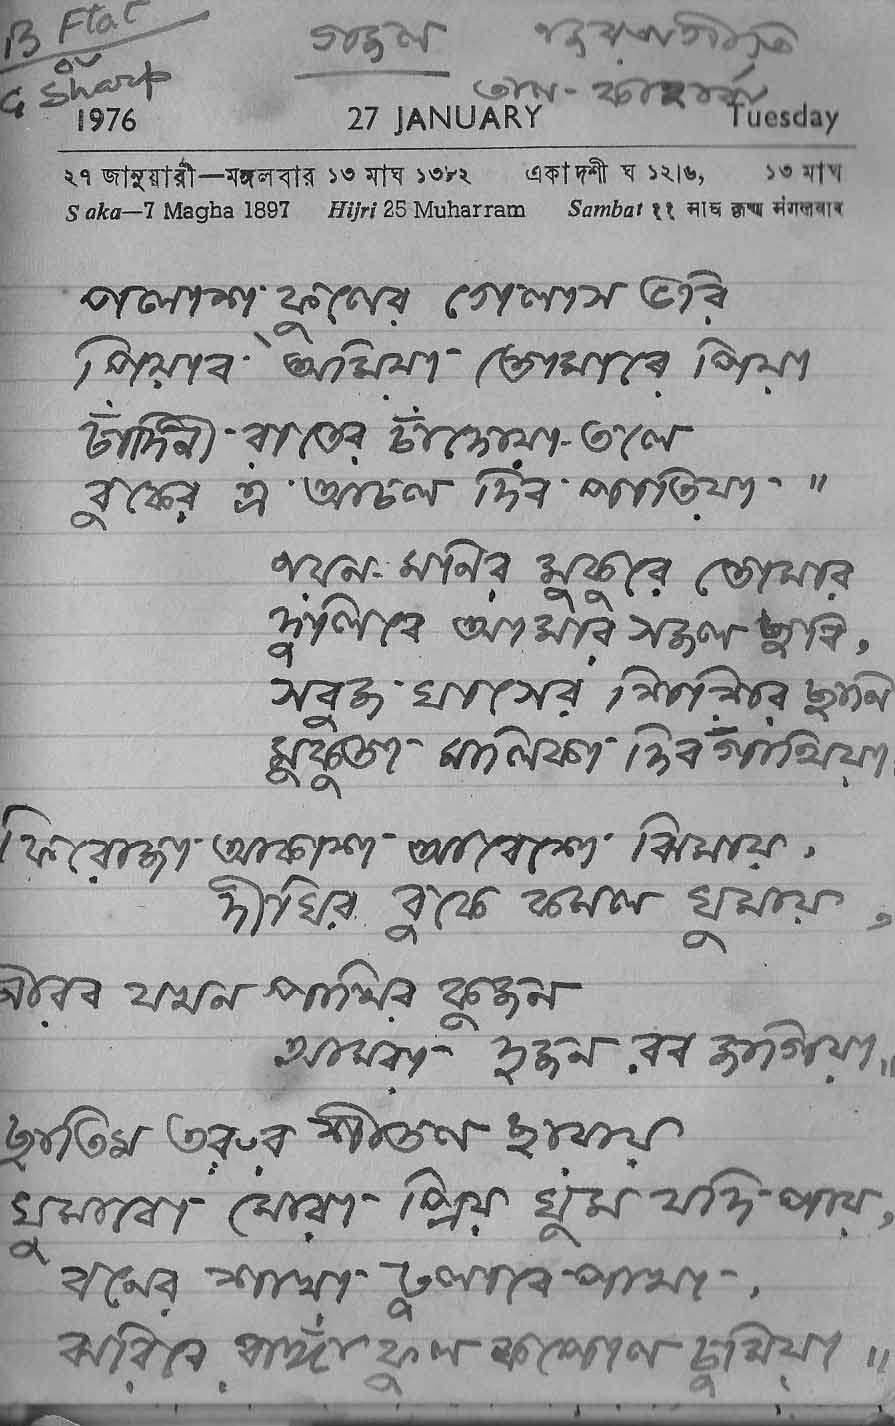 B Flat
or
G Sharp
গজল নজরুলগীতি
তাল - কাহার্বা
1976 27 JANUARY Tuesday
২৭ জানুয়ারী—মঙ্গলবার ১৩ মাঘ ১৩৮২ একাদশী ঘ ১২।৬, ১৩ মাঘ
Saka—7 Magha 1897 Hijri 25 Muharram Sambat ११ माघ कृष्ण मंगलवार
পলাশ ফুলের গেলাস ভরি
পিয়াব অমিয়া তোমারে পিয়া
চাঁদিনী রাতের চাঁদোয়া তলে
বুকের এ আচল দিব পাতিয়া ॥
নয়ন মনির মুকুরে তোমার
দুলিবে আমার সজল ছবি,
সবুজ ঘাসের শিশির ছানি
মুকুতা মালিকা দিব গাঁথিয়া
ফিরোজা আকাশ আবেশে ঝিমায়,
দীঘির বুকে কমল ঘুমায়,
নীরব যখন পাখির কুজন
আমরা দুজন রব জাগিয়া ॥
ছাতিম তরুর শীতল ছায়ায়
ঘুমাবো মোরা প্রিয় ঘুম যদি পায়,
বনের শাখা ঢুলাবে পাখা,
ঝরিবে রাঙ্গা ফুল কপোল চুমিয়া ॥